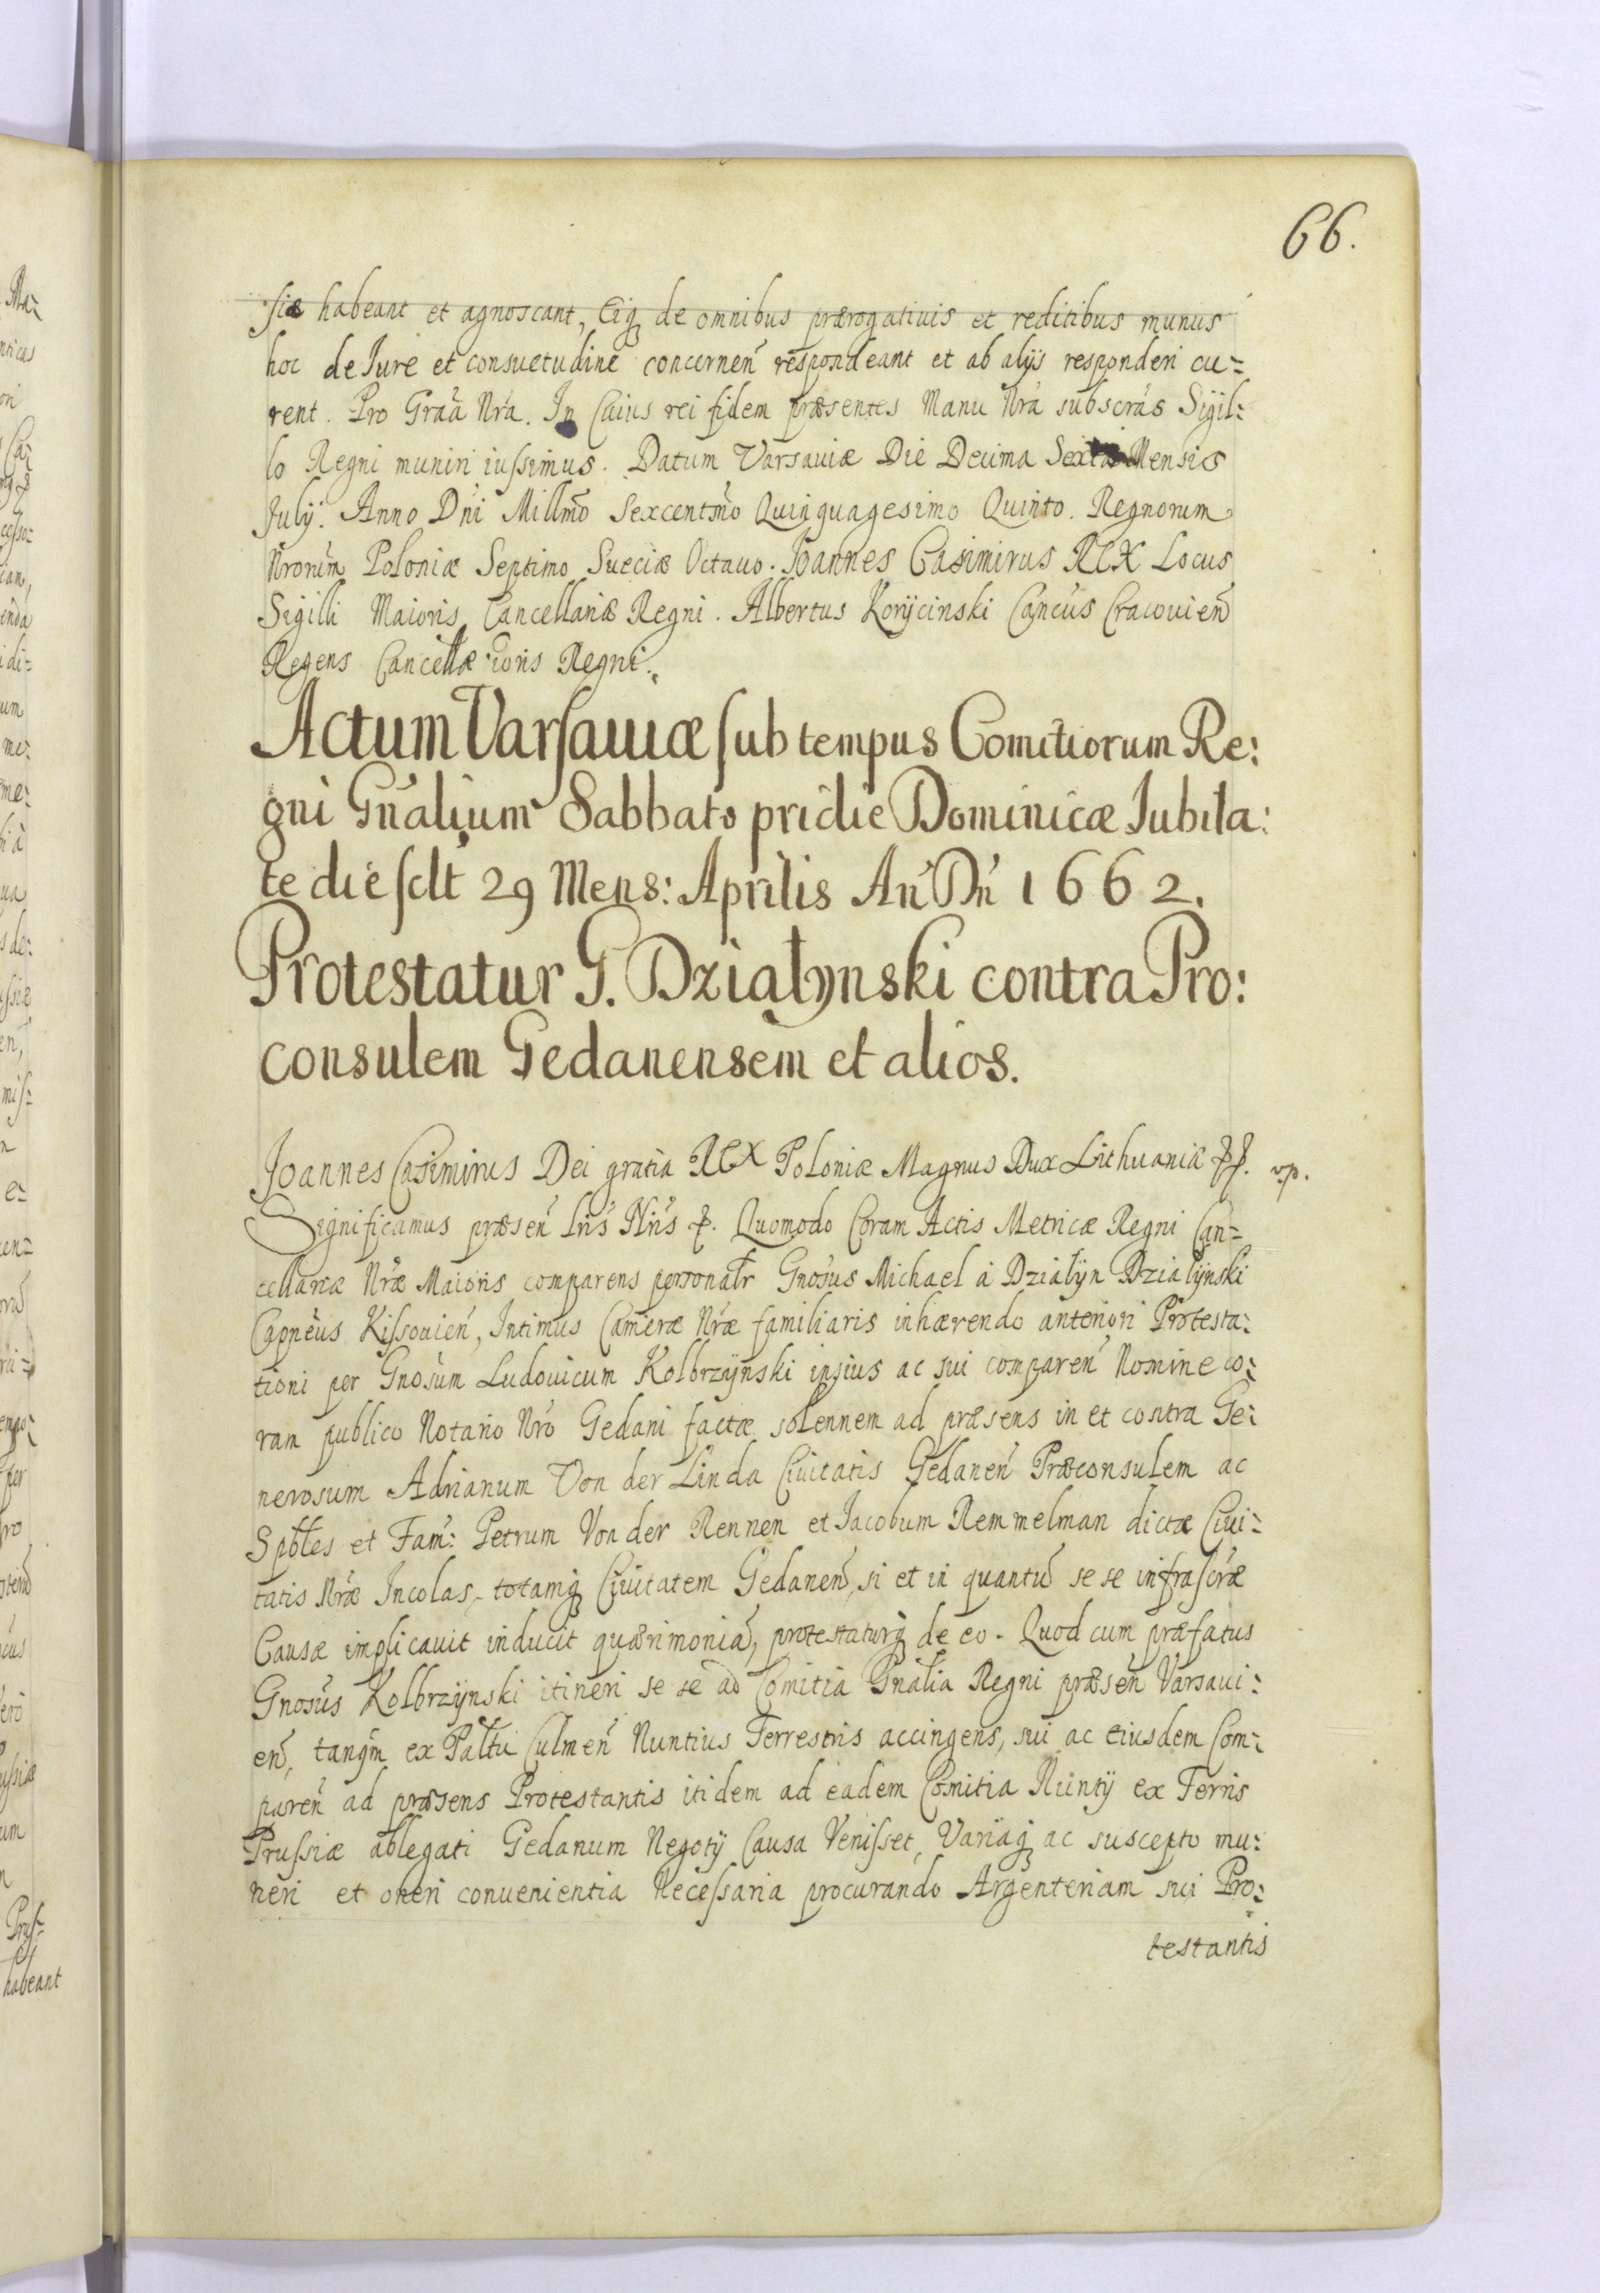 66.
siæ habeant et agnoscant, Eiq de omnibus prærogatiuis et reditibus munus
hoc de Iure et consuetudine concernen̄ respondeant et ab alijs responderi cu=
rent. Pro Graã Nrã. In Cuius rei fidem præsentes Manu Nrã subscrãs Sigil:
lo Regni muniri iussimus. Datum Varsauiæ Die Decima Sexta Mensis
Iulij. Anno Dni Millmõ Sexcentmõ Quinquagesimo Quinto. Regnorum
Nrorũm Poloniæ Septimo Sueciæ Octauo. Ioannes Casimirus REX Locus
Sigilli Maioris Cancellariæ Regni. Albertus Korijcinski Cancũs Cracouien̄
Regens Cancellæ ioris Regni.
Actum Varsauiæ sub tempus Comitiorum Re:
gni Gnãlium Sabbato pridie Dominicæ Iubila:
te die sclt 29 Mens: Aprilis An̄ Dn̄ 1662.
Protestatur G. Działynski contra Pro:
consulem Gedanensem et alios.
Ioannes Casimirus Dei gratia REX Poloniæ Magnus Dux Lithuaniæ pp. vp.
Significamus præsen̄ Lris̄ Nris̄ p. Quomodo Coram Actis Metricæ Regni Can=
cellariæ Nræ̃ Maioris comparens personalr̃ Gnosũs Michael à Dzialijn Dzialijnski
Cappneũs Kissouien̄, Intimus Cameræ Nræ̃ familiaris inhærendo anteriori Protesta:
tioni per Gnosũm Ludouicum Kolbrzijnski ipsius ac sui comparen̄ Nomine co:
ram publico Notario Nrõ Gedani factæ solennem ad præsens in et contra Ge:
nerosum Adrianum Von der Linda Ciuitatis Gedanen̄ Præconsulem ac
Spbles̃ et Fam: Petrum Von der Rennen et Jacobum Remmelman dictæ Ciui:
tatis Nræ̃ Incolas, totamq Ciuitatem Gedanen̄, si et in quantũ se se infrascræ̃
Causæ implicauit inducit quærimoniã, protestaturq de eo. Quod cum præfatus
Gnosũs Kolbrzijnski itineri se se ad Comitia Gnãlia Regni præsen̄ Varsaui:
en̄, tanqm̃ ex Palttu Culmen̄ Nuntius Terrestris accingens, sui ac eiusdem Com:
paren̄ ad præsens Protestantis itidem ad eadem Comitia Nuntij ex Terris
Prussiæ ablegati Gedanum Negotij Causa Venisset, Variaq ac suscepto mu:
neri et oneri conuenientia Necessaria procurando Argenteriam sui Pro:
testantis